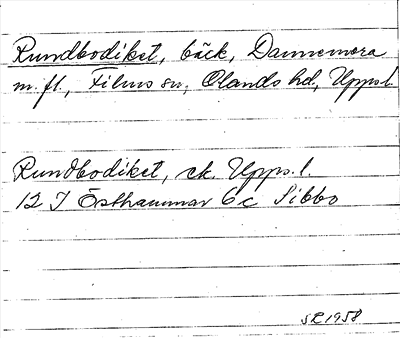 Rundbodiket, bäck, Dannemora
m. fl., Films sn, Olands hd, Upps.l.
Rundbodiket, ek. Upps. l.
12 I Östhammar 6c Sibbo
SR 1958